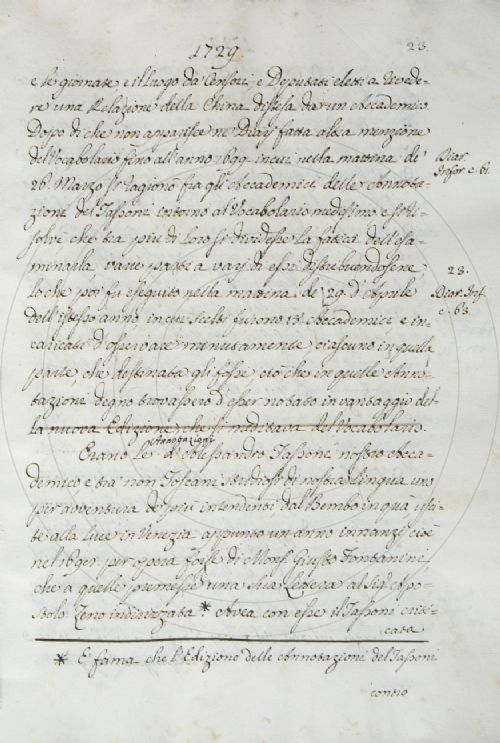 1729.
23.
e le giornate e il luogo da Censori, e Deputati eletti a rivede-
re una Relazione della China distesa da un Accademico.
Dopo di che non apparisce ne' Diarj fatta altra menzione
del Vocabolario fino all'anno 1699. in cui nella mattina de'
26. Marzo si ragionò fra gli Accademici delle Annota-
zioni del Tassoni intorno al Vocabolario medesimo e si ri-
solvé che tra più di loro si dividesse la fatica dell'esa-
minarla varie parte a varj di essi distribuendosene
lo che poi fu eseguito nella mattina de' 29. d'Aprile
dell'istesso anno in cui scelti furono 13. Accademici e in-
caricati d'osservare minutamente ciascuno in quella
parte, che destinata gli fosse ciò che in quelle Anno-
tazione degno trovassero d'esser notato in vantaggio del-
la nuova Edizione, che si meditava del Vocabolario.
Diar.
Infor. c. 61.
23.
Diar. Inf.
c. 63.
Erano le Annotazioni d'Alessandro Tassoni nostro Acca-
demico e tra' non Toscani studiosi di nostra Lingua uno
per avventura de' più intendenti dal Bembo in quà usci-
te alla luce in Venezia appunto un anno innanzi cioè
nel 1698. per opera forse di Mons. Giusto Fontanini,
che a quelle premesse una sua Lettera al Sig. Apo-
stolo Zeno indirizzata * Avea con esse il Tassoni criti-
cata
* E fama che l'Edizione delle Annotazioni del Tassoni
contro